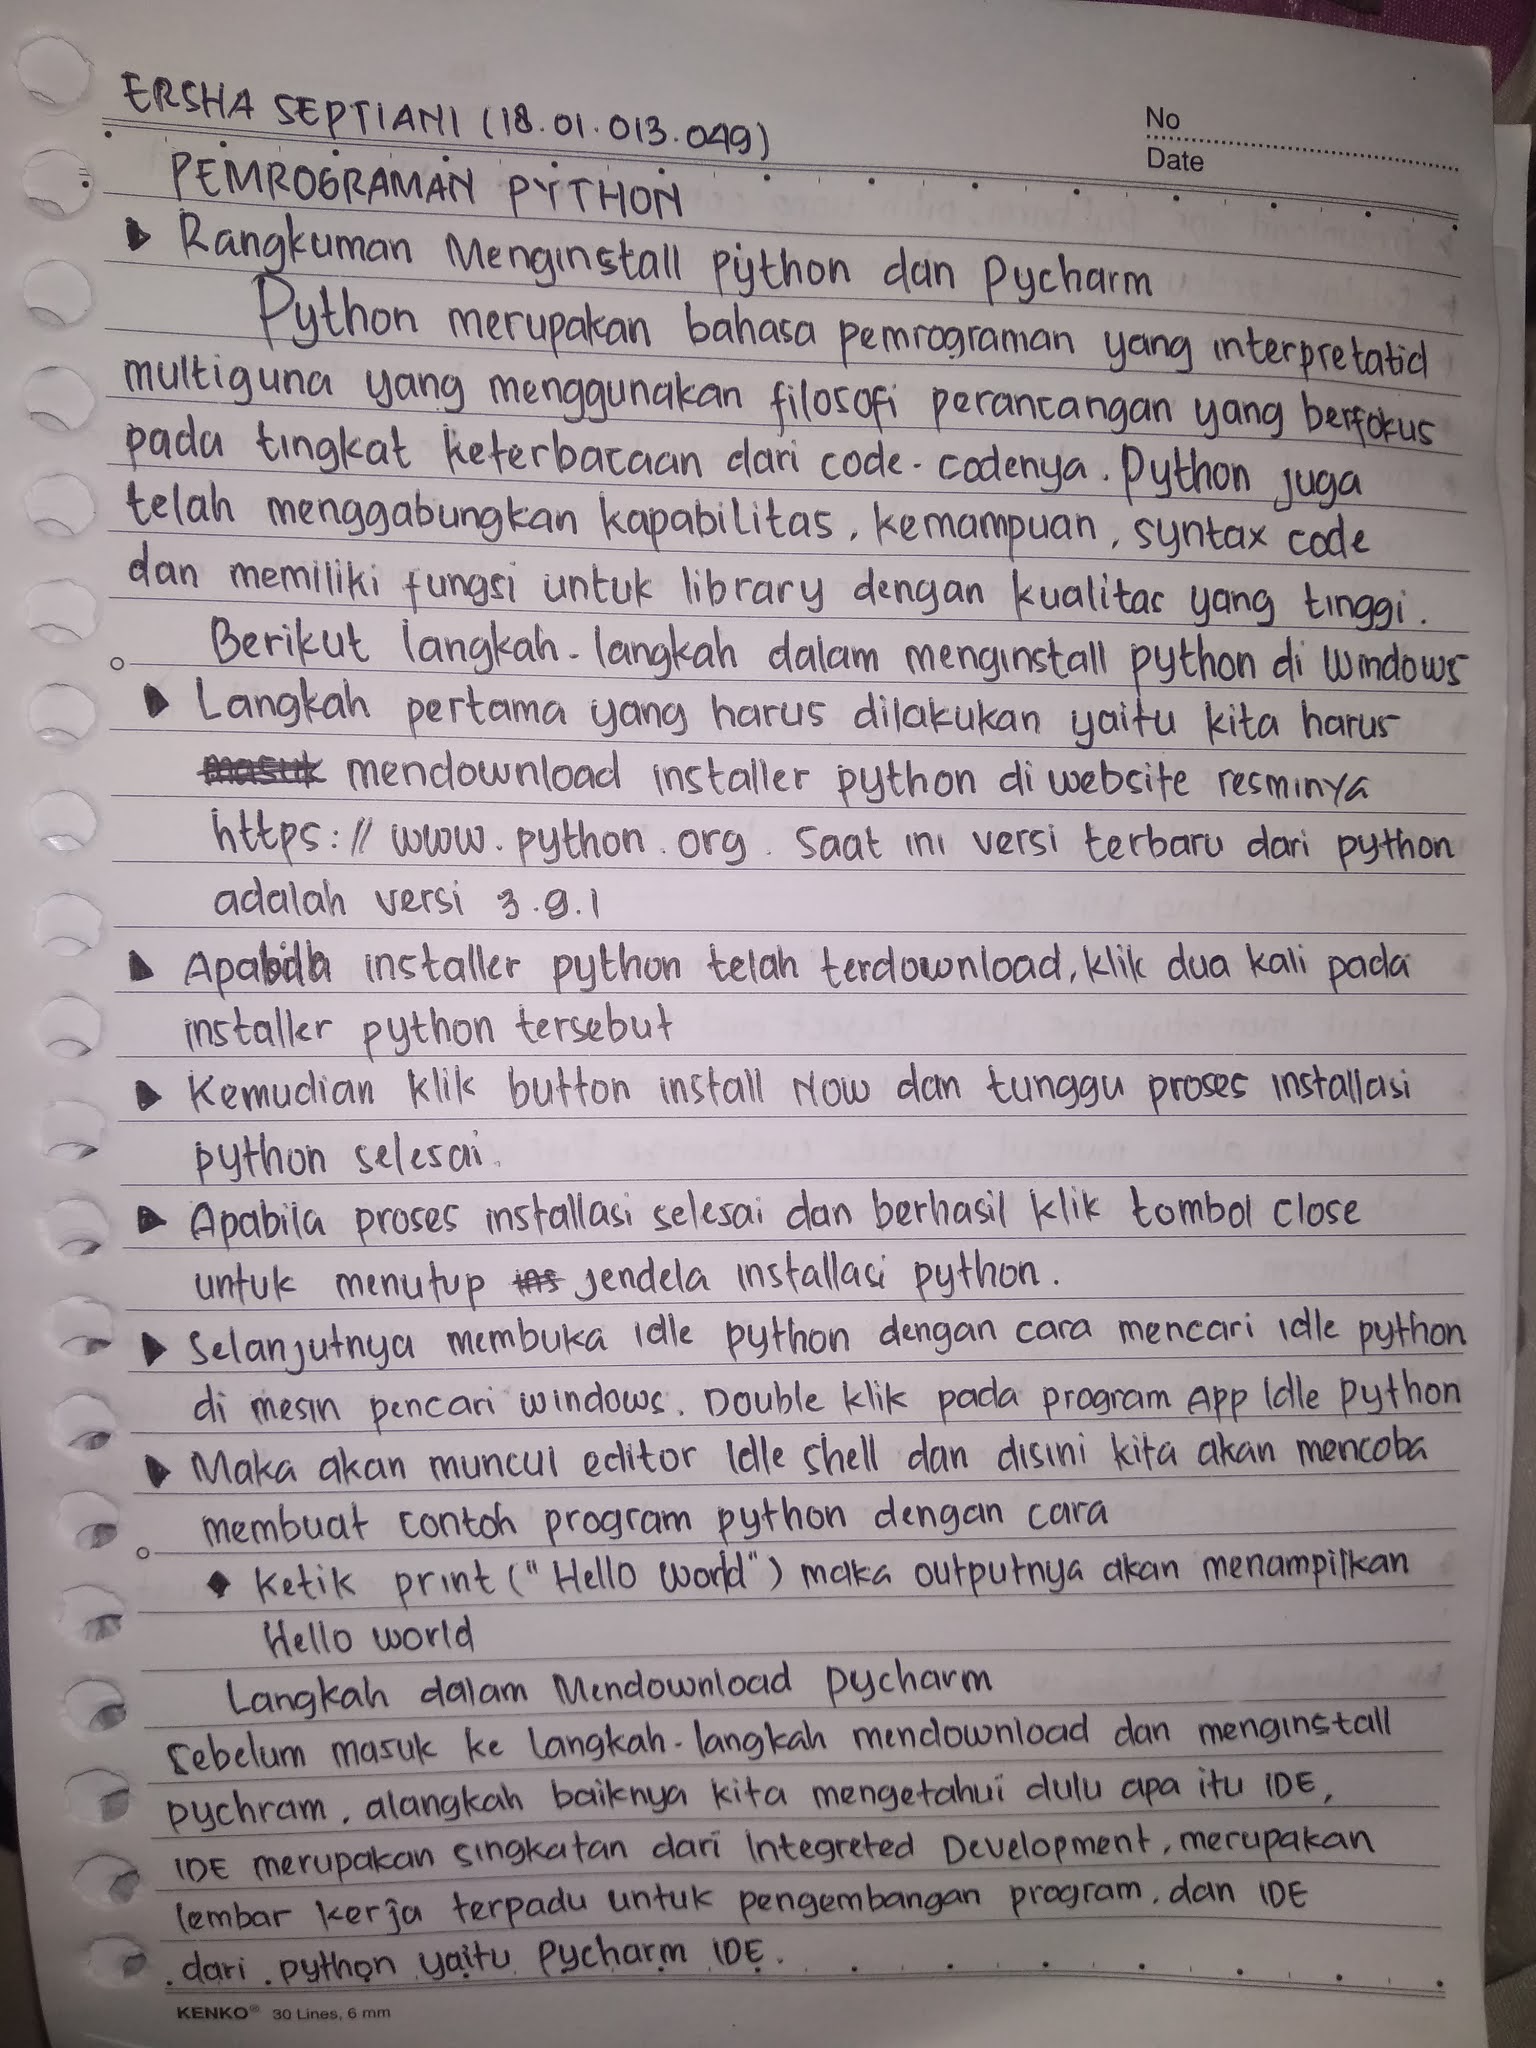 ERSHA SEPTIANI (18.01.013.049)
No
Date
PEMROGRAMAN PYTHON
Rangkuman Menginstall python dan Pycharm
Python merupakan bahasa pemrograman yang interpretatid
multiguna yang menggunakan filosofi perancangan yang berfokus
pada tingkat keterbacaan dari code-codenya. Python juga
telah menggabungkan kapabilitas, kemampuan, syntax code
dan memiliki fungsi untuk library dengan kualitas yang tinggi.
Berikut langkah-langkah dalam menginstall python di windows
Langkah pertama yang harus dilakukan yaitu kita harus
masuk mendownload installer python di website resminya
https://www.python.org. Saat ini versi terbaru dari python
adalah versi 3.9.1
Apabila installer python telah terdownload, klik dua kali pada
installer python tersebut
Kemudian klik button install Now dan tunggu proses installasi
python selesai.
Apabila proses installasi selesai dan berhasil klik tombol close
untuk menutup ins jendela installasi python.
Selanjutnya membuka idle python dengan cara mencari idle python
di mesin pencari windows. Double klik pada program App Idle python
Maka akan muncul editor Idle shell dan disini kita akan mencoba
membuat contoh program python dengan cara
Ketik print ("Hello world") maka outputnya akan menampilkan
Hello world
Langkah dalam Mendownload pycharm
sebelum masuk ke langkah-langkah mendownload dan menginstall
pychram, alangkah baiknya kita mengetahui dulu apa itu IDE,
IDE merupakan singkatan dari Integreted Development, merupakan
lembar kerja terpadu untuk pengembangan program, dan IDE
dari python yaitu Pycharm IDE.
KENKO® 30 Lines, 6 mm